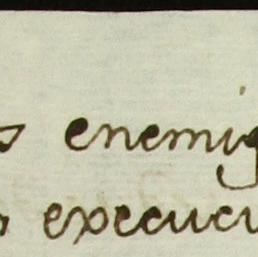 s enemig
execucu